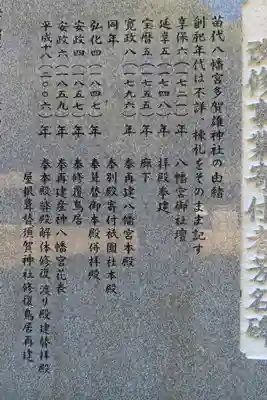 苗代八幡宮多賀雄神社の由緒
創祀年代は不詳 棟札をそのまま記す
享保六(一七二一)年 八幡宮御社壇
延享五(一七四八)年 拝殿奉建
宝暦五(一七五五)年 廊下
寛政八(一七九六)年 奉再建八幡宮本殿
同年 奉別殿寄付祇園社本殿
弘化四(一八四七)年 奉葺替御本殿併拝殿
安政四(一八五七)年 奉修復鳥居
安政六(一八五九)年 奉再建産神八幡宮花表
平成十八(二〇〇六)年 奉本殿幣殿解体修復渡り殿建替拝殿
屋根葺替須賀神社修復鳥居再建
改修事業寄付者芳名碑